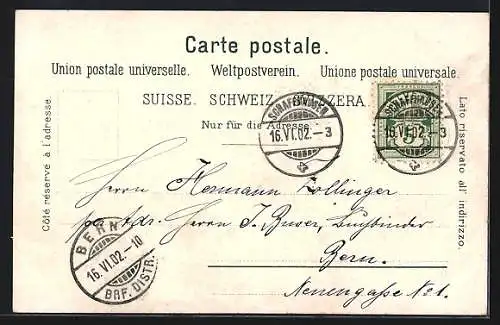 Carte postale.
Union postale universelle. Weltpostverein. Unione postale universale.
SUISSE. SCHWEIZ. SVIZZERA.
Nur für die Adresse.
Côté réservé à l'adresse.
Lato riservato all' indirizzo.
SCHAFFHAUSEN
16.VI.02.–3
SCHAFFHAUSEN
16.VI.02.–3
5
Herrn Hermann Zollinger
Herrn J.
Bern.
Neuengasse No 1.
BERN
16.VI.02.–10
BRF. DISTR.